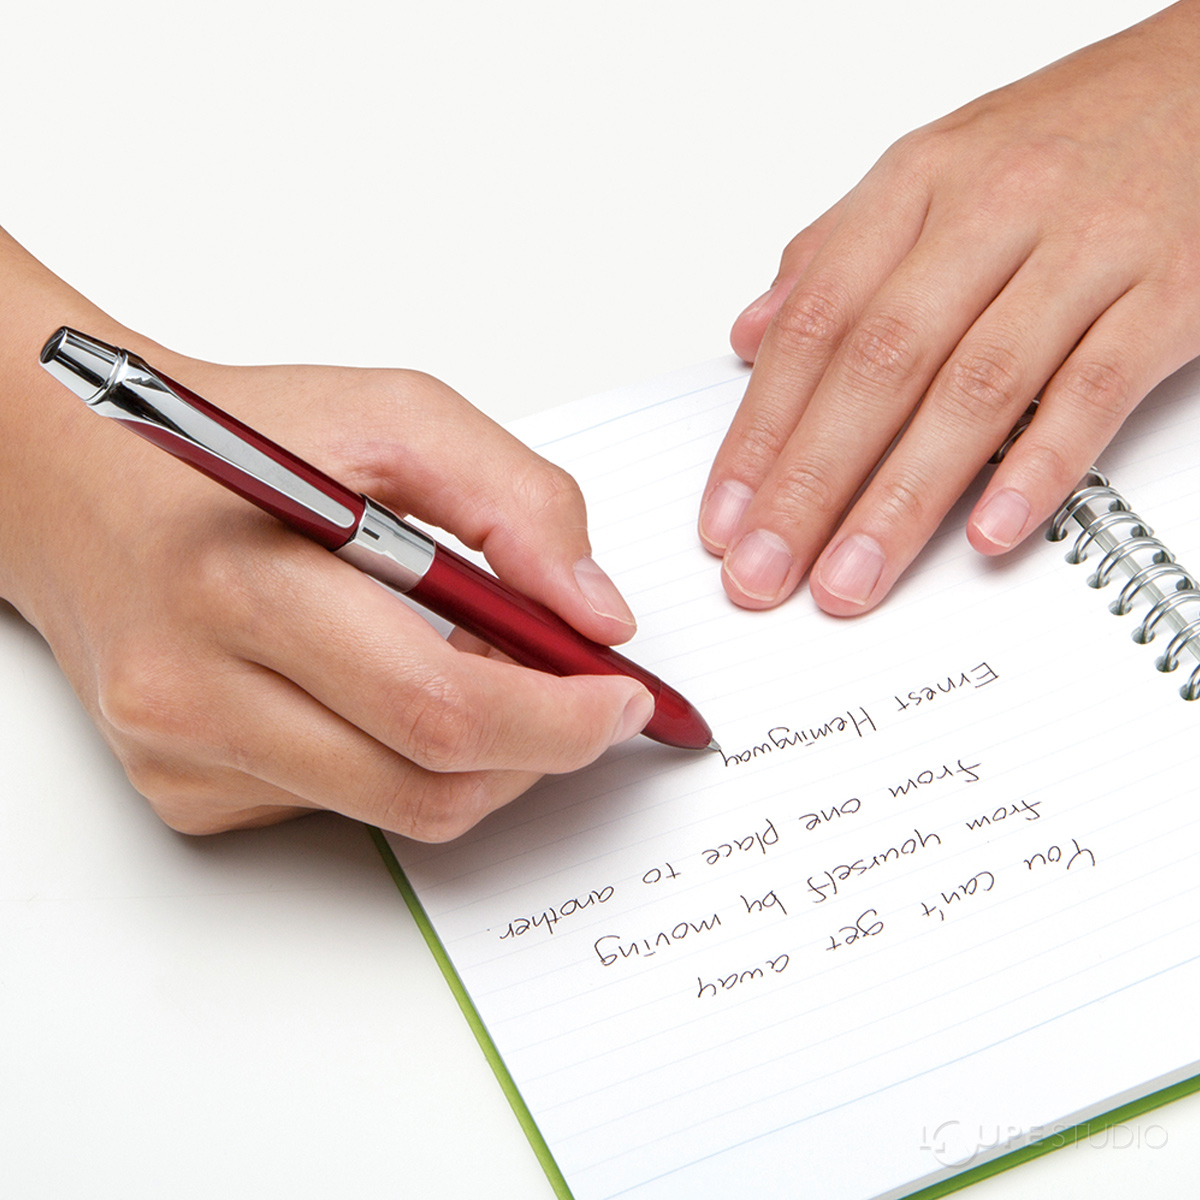 You can't get away
from yourself by moving
from one place to another.
Ernest Hemingway
LOUPE STUDIO